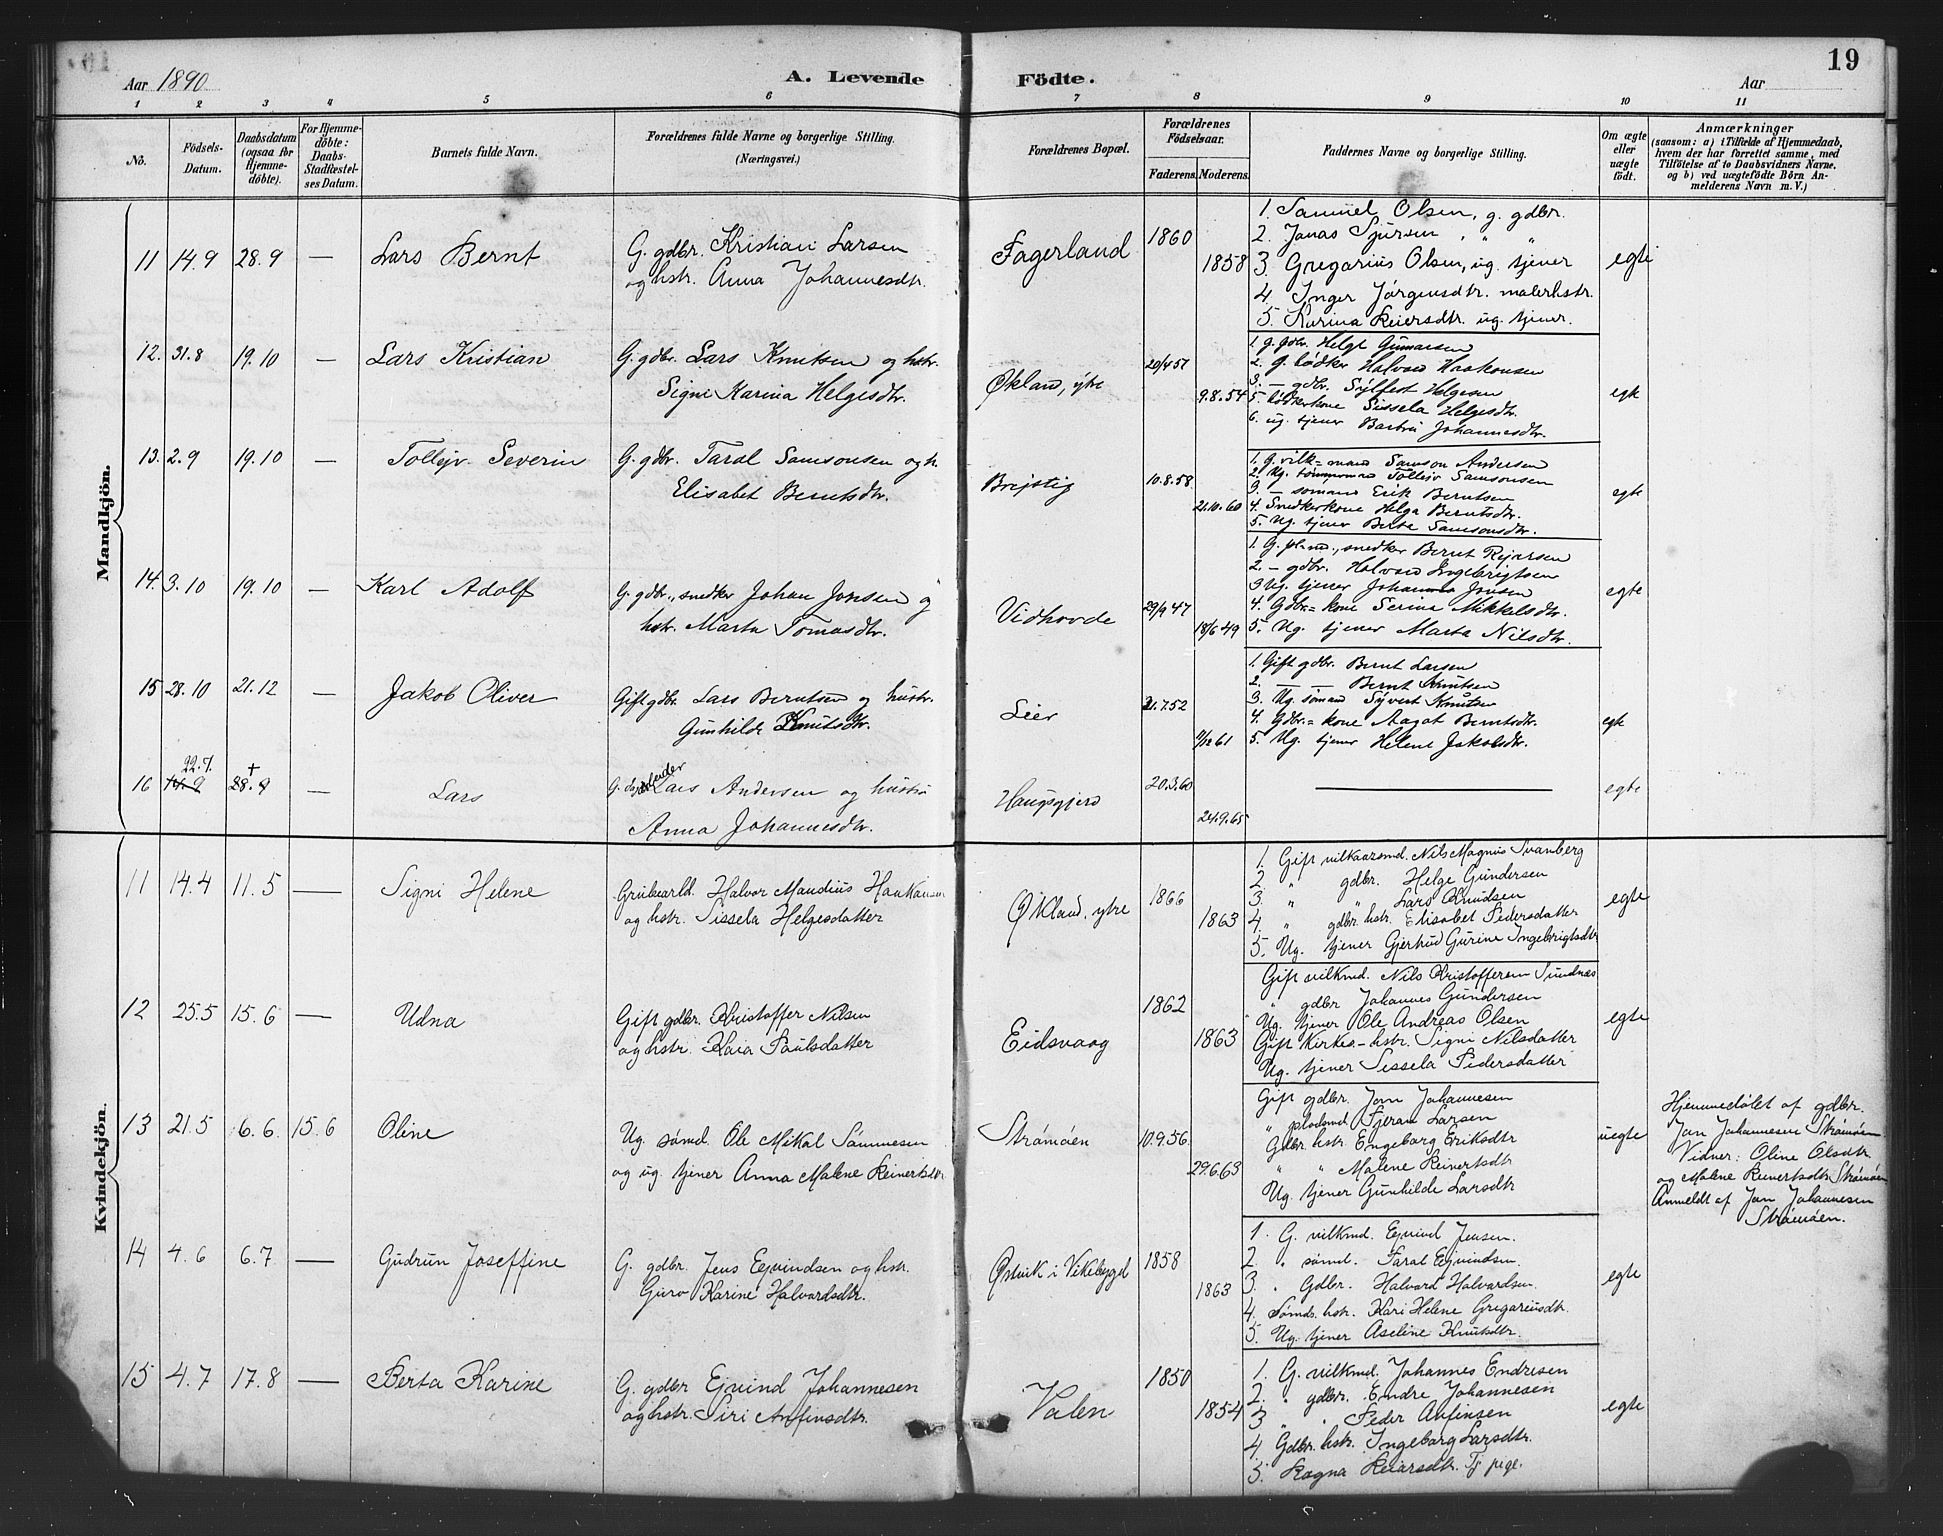 Aar 1890
A. Levende Födte.
Aar
19
1 2 3 4 5 6 7 8 9 10 11
No.
Födsels-Datum.
Daabsdatum (ogsaa for Hjemme-döbte).
For Hjemme-döbte: Daabs-Stadfæstel-ses Datum.
Barnets fulde Navn.
Forældrenes fulde Navne og borgerlige Stilling. (Næringsvei.)
Forældrenes Bopæl.
Forældrenes Födselsaar.
Faderens. Moderens.
Faddernes Navne og borgerlige Stilling.
Om ægte eller uægte födt.
Anmærkninger
(saasom: a) i Tilfælde af Hjemmedaab, hvem der har forrettet samme, med Tilföielse af to Daabsvidners Navne, og b) ved uægtefödte Börn Anmelderens Navn m. V.)
Mandkjön.
11 14.9 28.9 — Lars Bernt
G. gdbr. Kristian Larsen
og hstr. Anna Johannesdtr.
Fagerland 1860 1858
1. Samuel Olsen, g. gdbr.
2. Jonas Sjursen " "
3. Gregarius Olsen, ug. tjener
4. Inger Jørgensdtr. malerhstr.
5. Karina Reiersdtr. ug. tjener.
egte
12. 31.8 19.10 — Lars Kristian
G. gdbr. Lars Knutsen og hstr.
Signi Karina Helgesdtr.
Økland, ytre 20/4 57 9.8.54
1. g. gdbr. Helge Gunnarsen
2. G. bødker Halvard Haakonsen
3. — gdbr. Sylfest Helgesen
5. bødkerkone Sissela Helgesdtr.
6. ug. tjener Barbru Johannesdtr.
egte
13. 2.9 19.10 — Tollejv Severin
G. gdbr. Taral Samsonsen og h.
Elisabet Berntsdtr.
Brejstig 10.8.58 21.10.60
1. G. vilk=mand Samson Andersen
2. Ug. tømmermand Tollejv Samsonsen
3. — sømand Erik Berntsen
4. Snedkerkone Helga Berntsdtr.
5. Ug. tjener Berta Samsonsdtr.
egte
14. 3.10 19.10 — Karl Adolf
G. gdbr., snedker Johan Jonsen og
hstr. Marta Tomasdtr.
Vidhovde 29/9 47 18/6 49
1. G. snedker Bernt Rejarsen
2. — gdbr. Halvard Ingebrigtsen
3 Ug. tjener Johannes Jonsen
4. Gdbr.=kone Serina Mikkelsdtr.
5. Ug. tjener Marta Nilsdtr.
egte
15 28.10 21.12 — Jakob Oliver
Gift gdbr. Lars Berntsen og hustr.
Gunhilde Knutsdtr.
Leer 21.7.52 61
1. Gift gdbr. Bernt Larsen
2. — — Bernt Knutsen
3. Ug. sømand Syvert Knutsen
4. Gdbr.=kone Aagot Berntsdtr.
5. Ug. tjener Helene Jakobsdtr.
egte
22.9.
16 14.9 †28.9 — Lars
G. Lars Andersen og hustru
Anna Johannesdtr.
Haugsgjerd 20.3.60 24.9.65
egte
Kvindekjön.
11 14.4 11.5 — Signi Helene
Grubearbd. Halvor Maudius Haukansen
og hstr. Sissela Helgesdatter
Økland, ytre 1866 1863
1. Gift vilkaarsmd. Nils Magnus Svanberg
2 " gdbr. Helge Gundersen
3 " " Lars Knudsen
4. " gdbr. hstr. Elisabet Pedersdatter
5. Ug. tjener Gjertrud Gurine Ingebrigtsdtr
egte
12 25.5 15.6 — Udna
Gift gdbr. Kristoffer Nilsen
og hstr. Kaia Paulsdatter
Eidsvaag 1862 1863
Gift vilkmd. Nils Kristoffersen Sundnæs
" gdbr Johannes Gundersen
Ug. tjener Ole Andreas Olsen
Gift Kirkes.-hstr. Signi Nilsdatter
Ug. tjener Sissela Pedersdatter
egte
13 21.5 6.6. 15.6 Oline
Ug. sømd. Ole Mikal Sammesen
og ug. tjener Anna Malene Reinertsdtr.
Strømøen 10.9.56. 29.6.63
Gift gdbr. Jan Johannesen
" pladsmd. Fjeran Larsen
Gdbr. hstr. Engeborg Eriksdtr
" " Malene Reinertsdtr
Ug. tjener Gunhilde Larsdtr
uegte
Hjemmedøbt af gdbr.
Jan Johannesen Strømøen
Vidner: Oline Olsdtr
og Malene Reinertsdtr. Strømøen
Anmeldt af Jan Johannesen
Strømøen.
14 4.6 6.7 — Gudrun Joseffine
G. gdbr. Jens Ejvindsen og hstr.
Guro Karine Halvardsdtr.
Østvik i Vikebygd 1858 1863
1. G. vilkmd. Ejvind Jensen.
2 " sømd. Taral Ejvindsen.
3 " Gdbr. Halvard Halvardsen.
4. Sømds. hstr. Kari Helene Gregariusdtr.
5. Ug. tjener Aseline Knutsdtr.
egte
15 4.7 17.8 — Berta Karine
G. gdbr Ejvind Johannesen
og hstr. Siri Anfinsdtr.
Valen 1850 1854
1. G. vilkmd. Johannes Endresen
2. " gdbr. Endre Johannesen
3 " " Peder Anfinsen
4. Gdbr. hstr. Ingeborg Larsdtr.
5. Ragna Reiarsdtr. Tj. pige.
egte